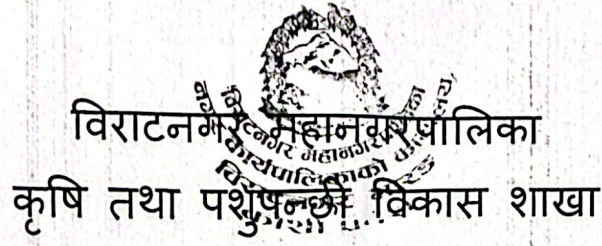 विराटनगर महानगरपालिका
कृषि तथा पशुपन्छी विकास शाखा